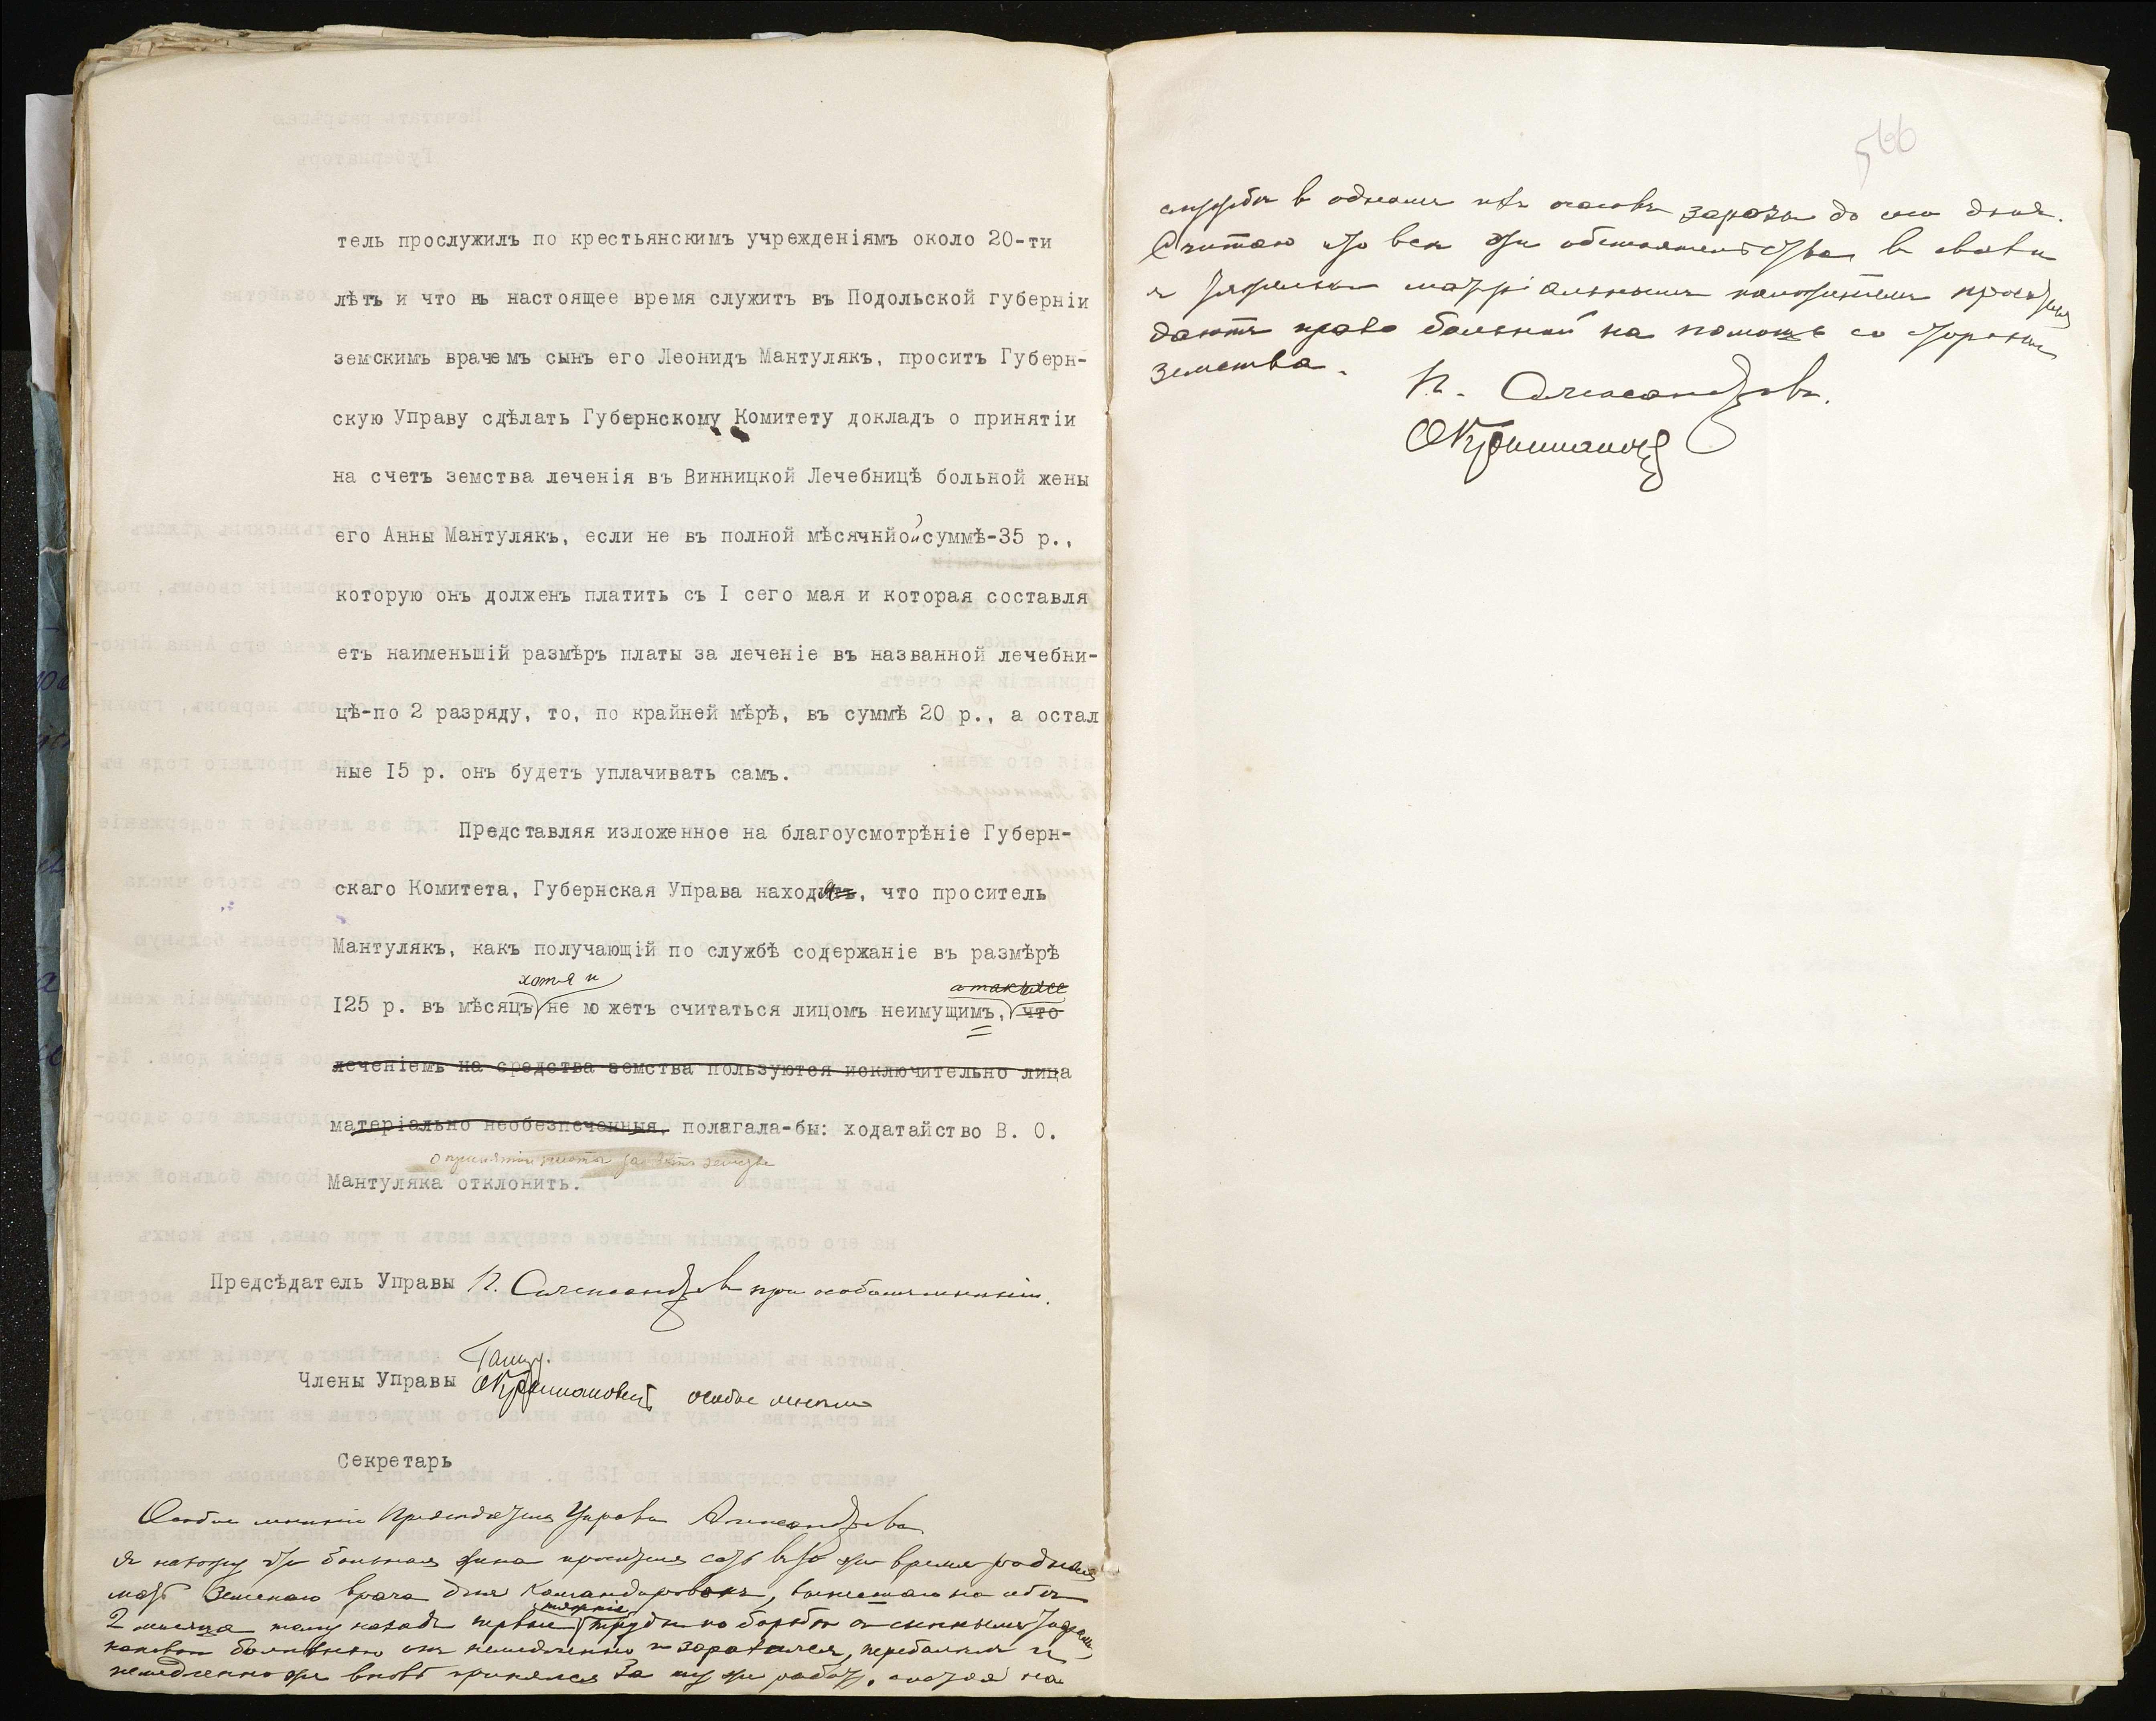 тель прослужилъ по крестьянскимъ учрежденіямъ около 20-ти
лѣтъ и что въ настоящее время служитъ въ Подольской губерніи
земскимъ врачемъ сынъ его Леонидъ Мантулякъ, проситъ Губерн-
скую Управу сдѣлать Губернскому Комитету докладъ о принятіи
на счетъ земства леченія въ Винницкой Лечебницѣ больной жены
его Анны Мантулякъ, если не въ полной мѣсячнйой суммѣ-35 р.,
которую онъ долженъ платить съ I сего мая и которая составля
етъ наименьшій размѣръ платы за леченіе въ названной лечебни-
цѣ-по 2 разряду, то, по крайней мѣрѣ, въ суммѣ 20 р., а остал
ные I5 р. онъ будетъ уплачивать самъ.
Представляя изложенное на благоусмотрѣніе Губерн-
скаго Комитета, Губернская Управа находя, что проситель
Мантулякъ, какъ получающій по службѣ содержаніе въ размѣрѣ
хотя и а также
I25 р. въ мѣсяцъ неможетъ считаться лицомъ неимущимъ, что
леченіемъ на средства земства пользуются исключительно лица
матеріально необезпеченныя, полагала-бы: ходатайство В. О.
о принятіи платы за счетъ земства
Мантуляка отклонить.
Предсѣдатель Управы П. Александровъ при особомъ мнѣніи.
Члены Управы особое мнѣніе
Секретарь
Особое мнѣніе Предсѣдателя Управы Александрова
Я нахожу что больная жена просителя есть въ то же время родная
мать Земскаго врача для командировокъ, вынесшаго на себѣ
тяжкіе
2 мѣсяца тому назадъ первые труды по борьбѣ съ сыпнымъ
немедленно и заразился, переболѣлъ и
немедленно же вновь принялся за ту же работу, стоя на
566
службѣ в одномъ изъ очаговъ заразы до сего дня.
Считаю что всѣ эти обстоятельства в связи
с тяжелымъ матеріальнымъ положеніемъ просителя
даютъ право больной на помощь со стороны
земства.
П. Александровъ.